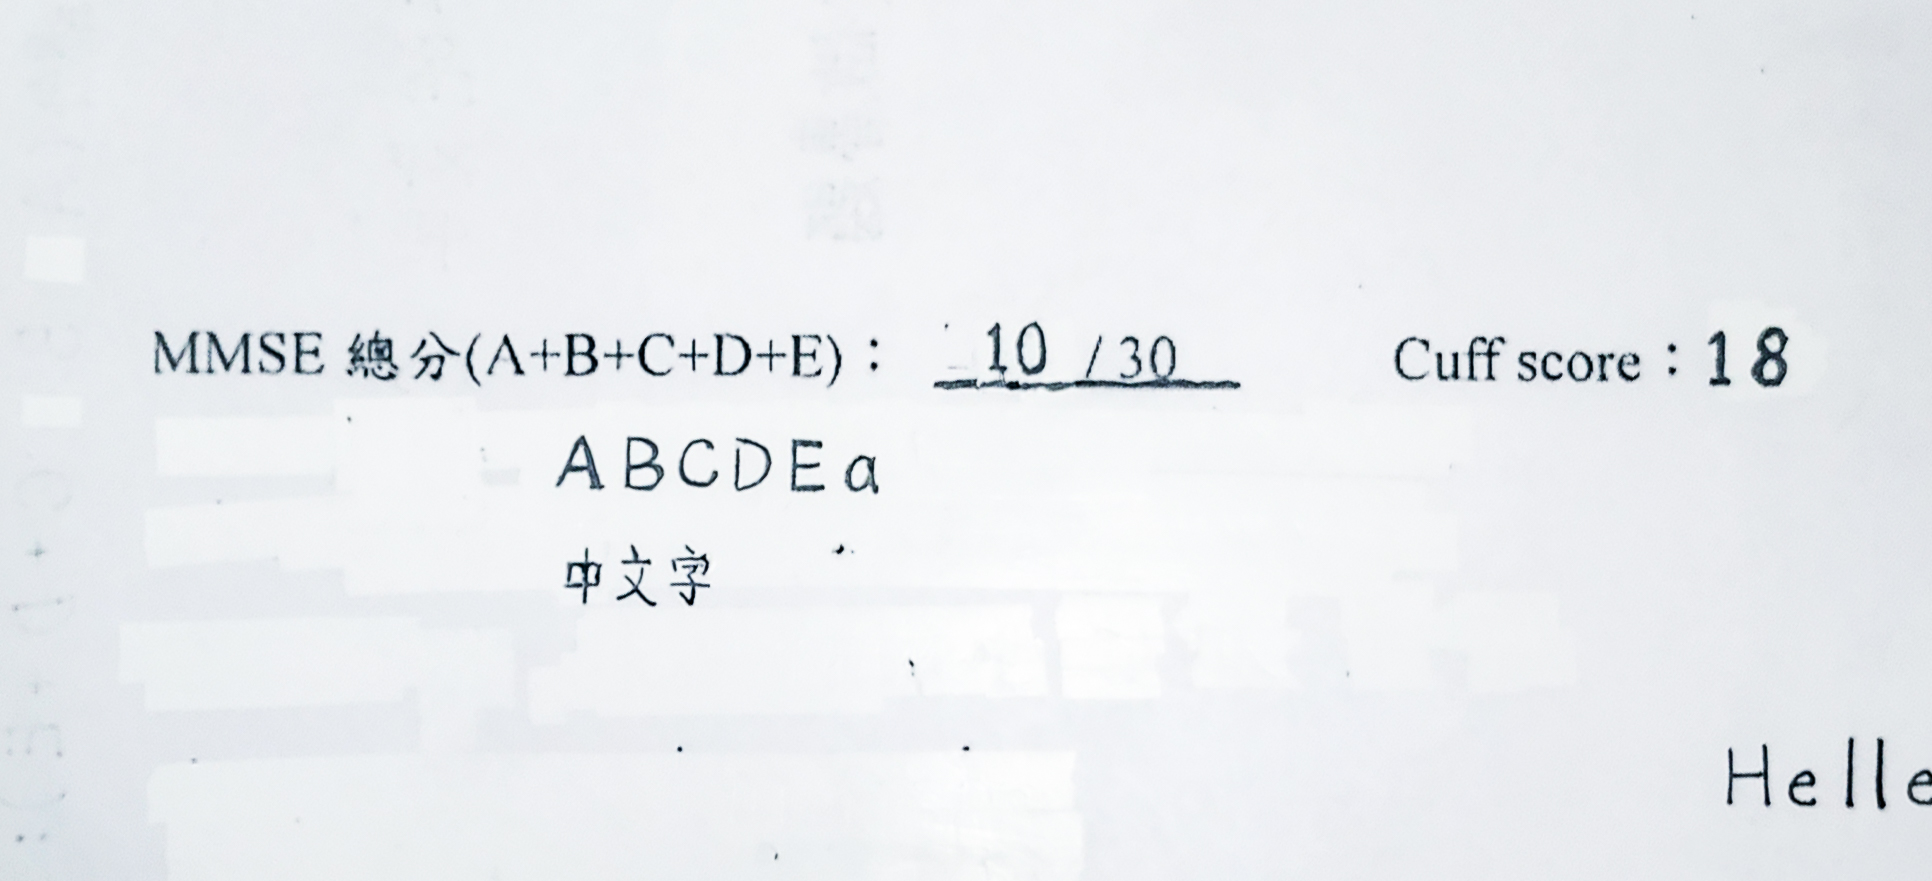 MMSE 總分(A+B+C+D+E)： 10 /30 Cuff score：18
A B C D E a
中文字
Helle